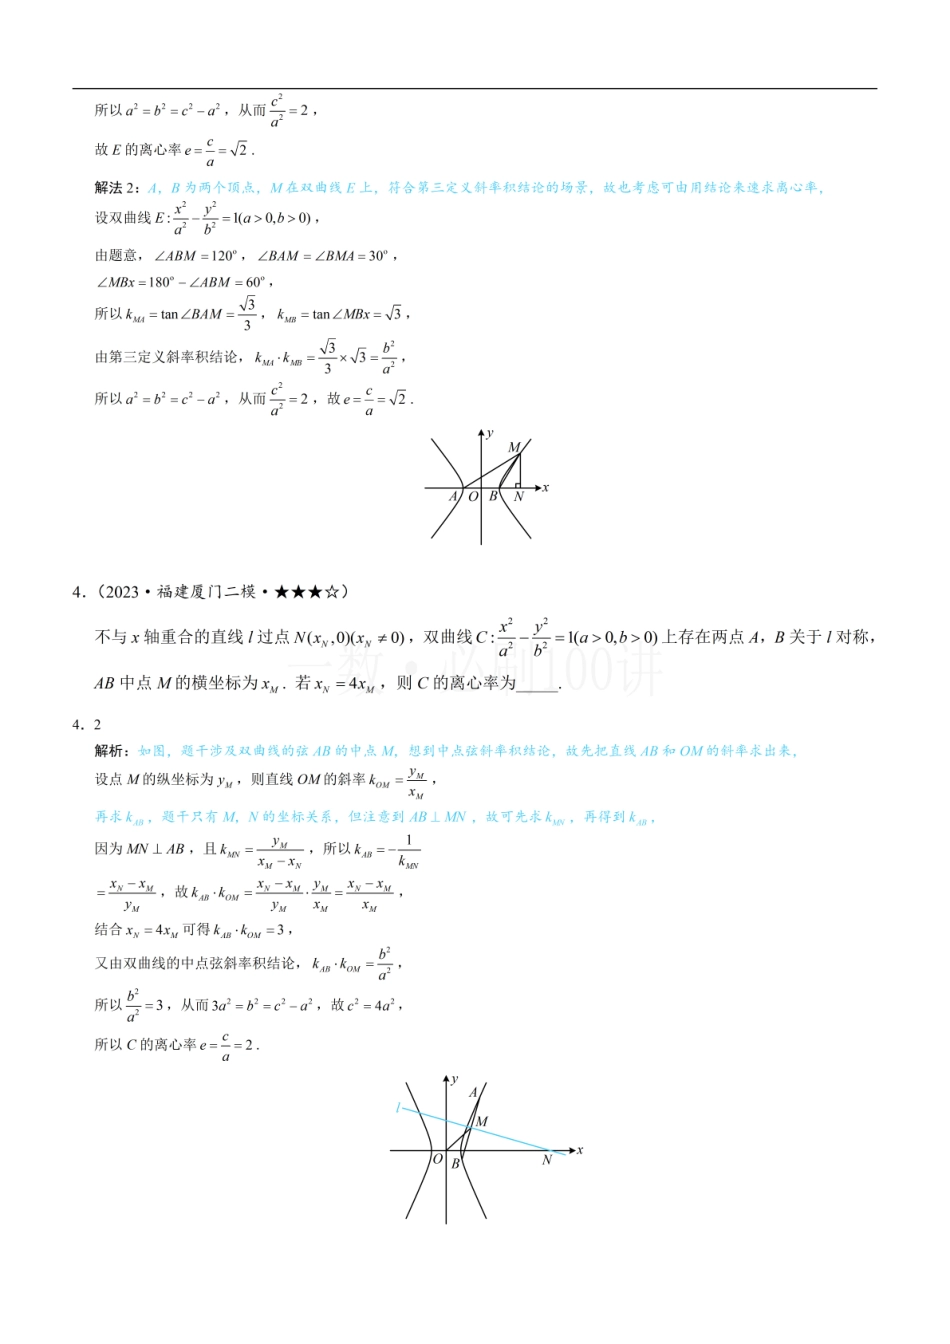 所以 a² = b² = c² − a²，从而 c²/a² = 2，
故 E 的离心率 e = c/a = √2 .
解法 2：A，B 为两个顶点，M 在双曲线 E 上，符合第三定义斜率积结论的场景，故也考虑可由用结论来速求离心率，
设双曲线 E : x²/a² − y²/b² = 1(a > 0, b > 0)，
由题意，∠ABM = 120°，∠BAM = ∠BMA = 30°，
∠MBx = 180° − ∠ABM = 60°，
所以 k_MA = tan∠BAM = √3/3，k_MB = tan∠MBx = √3，
由第三定义斜率积结论，k_MA · k_MB = √3/3 × √3 = b²/a²，
所以 a² = b² = c² − a²，从而 c²/a² = 2，故 e = c/a = √2 .
y
M
A O B N x
4.（2023·福建厦门二模·★★★☆）
不与 x 轴重合的直线 l 过点 N(x_N, 0)(x_N ≠ 0)，双曲线 C : x²/a² − y²/b² = 1(a > 0, b > 0) 上存在两点 A，B 关于 l 对称，
一数·必刷100讲
AB 中点 M 的横坐标为 x_M . 若 x_N = 4x_M，则 C 的离心率为_____.
4. 2
解析：如图，题干涉及双曲线的弦 AB 的中点 M，想到中点弦斜率积结论，故先把直线 AB 和 OM 的斜率求出来，
设点 M 的纵坐标为 y_M，则直线 OM 的斜率 k_OM = y_M/x_M，
再求 k_AB，题干只有 M，N 的坐标关系，但注意到 AB ⊥ MN，故可先求 k_MN，再得到 k_AB，
因为 MN ⊥ AB，且 k_MN = y_M/(x_M − x_N)，所以 k_AB = −1/k_MN
= (x_N − x_M)/y_M，故 k_AB · k_OM = (x_N − x_M)/y_M · y_M/x_M = (x_N − x_M)/x_M，
结合 x_N = 4x_M 可得 k_AB · k_OM = 3，
又由双曲线的中点弦斜率积结论，k_AB · k_OM = b²/a²，
所以 b²/a² = 3，从而 3a² = b² = c² − a²，故 c² = 4a²，
所以 C 的离心率 e = c/a = 2 .
y
A
l
M
x
O B N